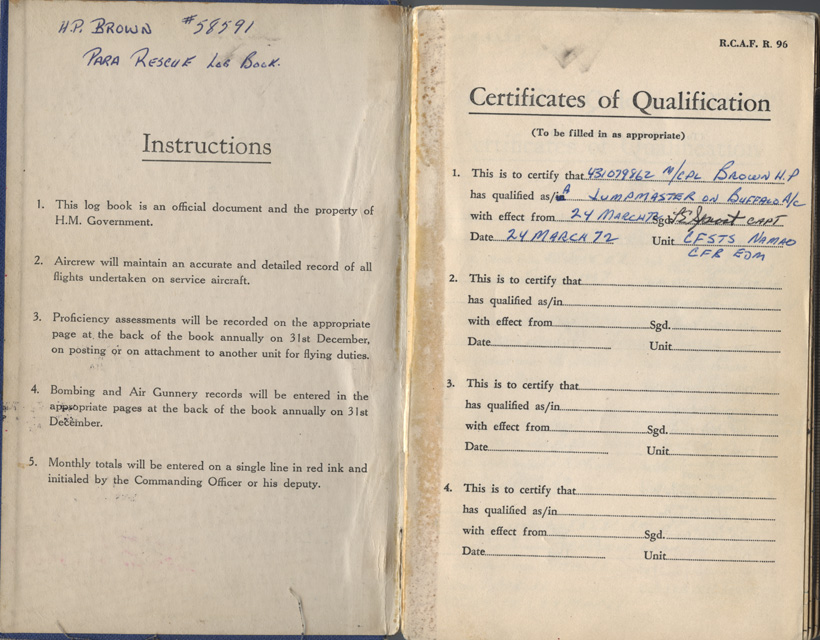 H.P. BROWN #58591
PARA RESCUE LOG BOOK.
Instructions
1. This log book is an official document and the property of
H.M. Government.
2. Aircrew will maintain an accurate and detailed record of all
flights undertaken on service aircraft.
3. Proficiency assessments will be recorded on the appropriate
page at the back of the book annually on 31st December,
on posting or on attachment to another unit for flying duties.
4. Bombing and Air Gunnery records will be entered in the
appropriate pages at the back of the book annually on 31st
December.
5. Monthly totals will be entered on a single line in red ink and
initialed by the Commanding Officer or his deputy.
R.C.A.F. R. 96
Certificates of Qualification
(To be filled in as appropriate)
1. This is to certify that 431079862 M/CPL BROWN H.P
has qualified as/in A JUMPMASTER ON BUFFALO A/C
with effect from 24 MARCH 72 Sgd. CAPT
Date 24 MARCH 72 Unit CFSTS NAMAO
CFB EDM
2. This is to certify that
has qualified as/in
with effect from Sgd.
Date Unit
3. This is to certify that
has qualified as/in
with effect from Sgd.
Date Unit
4. This is to certify that
has qualified as/in
with effect from Sgd.
Date Unit